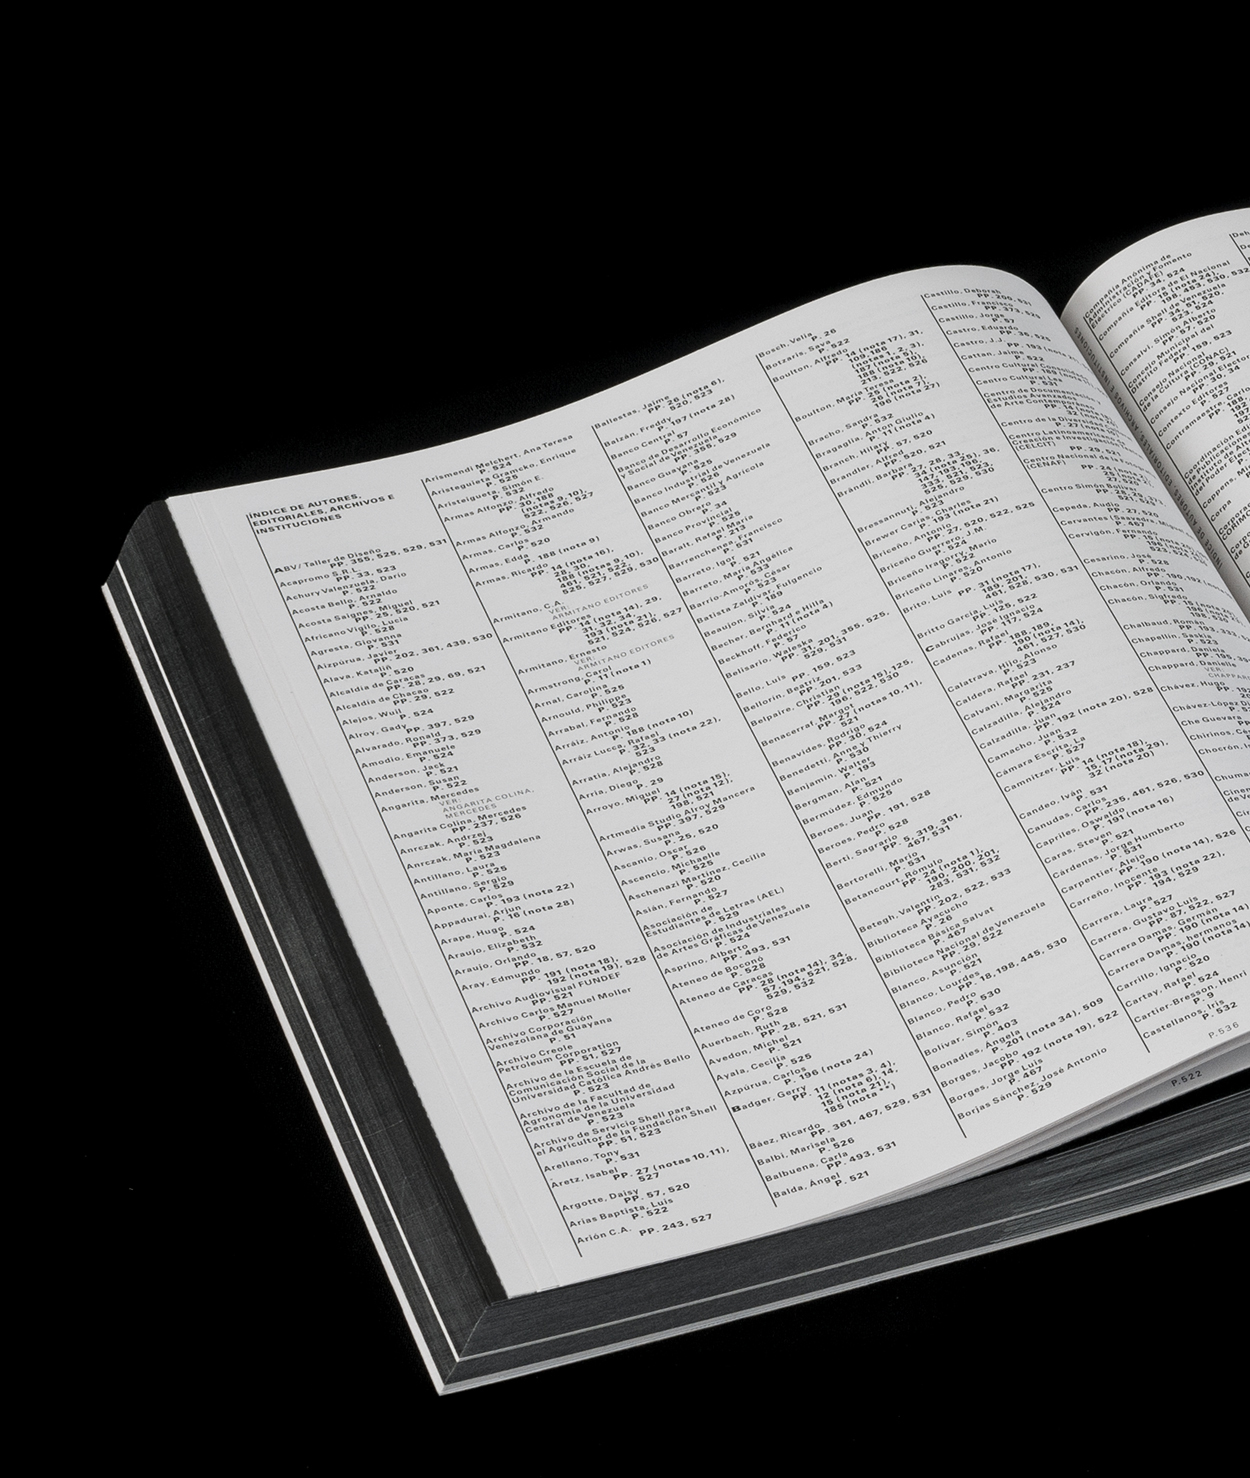 ÍNDICE DE AUTORES,
EDITORIALES, ARCHIVOS E
INSTITUCIONES
ABV / Taller de Diseño
PP. 355, 525, 529, 531
Acapromo S.R.L.
PP. 33, 523
Achury Valenzuela, Darío
P. 522
Acosta Bello, Arnaldo
P. 522
Acosta Saignes, Miguel
PP. 25, 520, 521
Africano Vigilio, Lucía
P. 528
Agresta, Giovanna
P. 531
Aizpúrua, Javier
PP. 202, 361, 439, 530
Alava, Katalin
P. 520
Alcaldía de Caracas
PP. 28, 29, 69, 521
Alcaldía de Chacao
PP. 29, 522
Alejos, Wuil
P. 524
Alroy, Gady
PP. 397, 529
Alvarado, Ronald
PP. 373, 529
Amodio, Emanuele
P. 524
Anderson, Jack
P. 521
Anderson, Susan
P. 522
Angarita, Mercedes
VER:
ANGARITA COLINA,
MERCEDES
Angarita Colina, Mercedes
PP. 237, 526
Anrczak, Andrzej
P. 523
Anrczak, María Magdalena
P. 523
Antillano, Laura
P. 525
Antillano, Sergio
P. 529
Aponte, Carlos
P. 193 (nota 22)
Appadurai, Arjun
P. 16 (nota 28)
Arape, Hugo
P. 524
Araujo, Elizabeth
P. 532
Araujo, Orlando
PP. 18, 57, 520
Aray, Edmundo
PP. 191 (nota 18),
192 (nota 19), 528
Archivo Audiovisual FUNDEF
P. 521
Archivo Carlos Manuel Moller
P. 527
Archivo Corporación
Venezolana de Guayana
P. 51
Archivo Creole
Petroleum Corporation
PP. 51, 527
Archivo de la Escuela de
Comunicación Social de la
Universidad Católica Andrés Bello
P. 523
Archivo de la Facultad de
Agronomía de la Universidad
Central de Venezuela
P. 523
Archivo de Servicio Shell para
el Agricultor de la Fundación Shell
PP. 51, 523
Arellano, Tony
P. 531
Aretz, Isabel
PP. 27 (notas 10, 11),
527
Argotte, Daisy
PP. 57, 520
Arias Baptista, Luis
P. 522
Arión C.A.
PP. 243, 527
Arismendi Melchert, Ana Teresa
P. 524
Aristeguieta Gramcko, Enrique
P. 525
Aristeiguieta, Simón E.
P. 532
Armas Alfonzo, Alfredo
PP. 30, 188
(notas 9, 10),
522, 526, 527
Armas Alfonzo, Armando
P. 532
Armas, Carlos
P. 520
Armas, Edda
P. 188 (nota 9)
Armas, Ricardo
PP. 14 (nota 16),
28, 30,
188 (notas 9, 10),
461, 521, 522,
525, 527, 529, 530
Armitano, C.A.
VER:
ARMITANO EDITORES
Armitano Editores
PP. 14 (nota 14), 29,
31, 32, 34,
193 (nota 21),
521, 524, 526, 527
Armitano, Ernesto
VER:
ARMITANO EDITORES
Armstrong, Carol
P. 11 (nota 1)
Arnal, Carolina
P. 525
Arnould, Philippe
P. 523
Arrabal, Fernando
P. 528
Arráiz, Antonio
P. 188 (nota 10)
Arráiz Lucca, Rafael
PP. 32, 33 (nota 22),
523
Arratia, Alejandro
P. 528
Arria, Diego
P. 29
Arroyo, Miguel
PP. 14 (nota 15),
27 (nota 12),
198, 521
Artmedia Studio Alroy Mancera
PP. 397, 529
Arwas, Susana
PP. 25, 520
Ascanio, Oscar
P. 526
Ascencio, Michaelle
P. 525
Aschenazi Martínez, Cecilia
P. 520
Asián, Fernando
P. 527
Asociación de
Estudiantes de Letras (AEL)
P. 529
Asociación de Industriales
de Artes Gráficas de Venezuela
P. 524
Asprino, Alberto
PP. 493, 531
Ateneo de Boconó
P. 528
Ateneo de Caracas
PP. 28 (nota 14), 34,
57, 194, 521, 528,
529, 532
Ateneo de Coro
P. 528
Auerbach, Ruth
PP. 28, 521, 531
Avedon, Michel
P. 521
Ayala, Cecilia
P. 525
Azpúrua, Carlos
P. 196 (nota 24)
Badger, Gerry
PP. 11 (notas 3, 4),
12 (nota 6), 14,
15 (nota 21),
185 (nota **)
Báez, Ricardo
PP. 361, 467, 529, 531
Balbi, Marisela
P. 526
Balbuena, Carla
PP. 493, 531
Balda, Ángel
P. 521
Ballestas, Jaime
PP. 26 (nota 6),
520, 523
Balzán, Freddy
P. 197 (nota 28)
Banco Central
P. 57
Banco de Desarrollo Económico
y Social de Venezuela
PP. 355, 529
Banco Guayana
P. 525
Banco Industrial de Venezuela
P. 526
Banco Mercantil y Agrícola
P. 523
Banco Obrero
P. 34
Banco Provincial
P. 525
Baralt, Rafael María
P. 213
Barrenchenea, Francisco
P. 531
Barreto, Igor
P. 521
Barreto, María Angélica
P. 533
Barrio-Amorós, César
P. 523
Batista Zaldívar, Fulgencio
P. 169
Beaujon, Silvia
P. 524
Becher, Bernhard e Hilla
P. 11 (nota 4)
Beckhoff, Federico
P. 57
Belisario, Waleska
PP. 31, 201, 355, 525,
529, 531
Bello, Luis
PP. 159, 523
Bellorín, Beatriz
PP. 201, 533
Belpaire, Christian
PP. 29 (nota 15), 125,
196, 522, 530
Benacerraf, Margot
PP. 27 (notas 10, 11),
521
Benavides, Rodrigo
PP. 30, 524
Benedetti, Annella Thierry
P. 531
Benjamin, Walter
P. 193
Bergman, Alan
P. 521
Bermúdez, Edmundo
P. 525
Beroes, Juan
PP. 191, 528
Beroes, Pedro
P. 528
Berti, Sagrario
PP. 5, 319, 361,
467, 531
Bertorelli, María
P. 531
Betancourt, Rómulo
PP. 24 (nota 1),
190, 200, 201,
283, 531, 532
Betegh, Valentin
PP. 202, 522, 533
Biblioteca Ayacucho
P. 26
Biblioteca Básica Salvat
P. 467
Biblioteca Nacional de Venezuela
PP. 29, 522
Blanco, Asunción
P. 521
Blanco, Lourdes
PP. 18, 198, 445, 530
Blanco, Pedro
P. 530
Blanco, Rafael
P. 532
Bolívar, Simón
P. 403
Bonadies, Ángela
P. 201 (nota 34), 509
Borges, Jacobo
PP. 192 (nota 19), 522
Borges, Jorge Luis
P. 467
Borjas Sánchez, José Antonio
P. 529
Bosch, Velia
P. 26
Botzaris, Sava
P. 522
Boulton, Alfredo
PP. 14 (nota 17), 31,
109, 186
(notas 1, 2, 3),
187 (nota 5),
188 (nota 10),
213, 522, 526
Boulton, María Teresa
PP. 25 (nota 2),
26 (nota 7),
196 (nota 27)
Bracho, Sandra
P. 532
Bragaglia, Anton Giulio
P. 11 (nota 4)
Branch, Hilary
PP. 57, 520
Brandler, Alfred
PP. 520, 521
Brändli, Barbara
PP. 27, 28, 33,
147, 193, 195,
333, 521, 523,
525, 529, 530
Bressannutti, Alejandro
P. 523
Brewer Carías, Charles
P. 193 (nota 21)
Briceño, Antonio
PP. 27, 520, 522, 525
Briceño Guerrero, J.M.
P. 524
Briceño Iragorry, Mario
P. 522
Briceño Linares, Antonio
P. 520
Brito, Luis
PP. 31 (nota 17),
189, 201,
461, 528, 530, 531
Britto García, Luis
PP. 125, 522
Cabrujas, José Ignacio
PP. 17, 524
Cadenas, Rafael
PP. 188, 189,
190 (nota 14),
467, 527, 530
Calatrava, Hijo, Alonso
P. 523
Caldera, Rafael
PP. 231, 237
Calvani, Margarita
P. 525
Calzadilla, Alejandro
P. 524
Calzadilla, Juan
PP. 192 (nota 20), 528
Camacho, Juan
P. 532
Cámara Escrita, La
P. 527
Camnitzer, Luis
PP. 14 (nota 18),
15, 17 (nota 29),
32 (nota 20)
Candeo, Iván
P. 531
Canudas, Carlos
PP. 235, 461, 526, 530
Capriles, Oswaldo
P. 191 (nota 16)
Caras, Steven
P. 521
Cárdenas, Jorge Humberto
P. 531
Carpentier, Alejo
PP. 190 (nota 14), 526
Carreño, Inocente
PP. 193 (nota 22),
194, 529
Carrera, Laura
P. 527
Carrera, Gustavo Luis
PP. 87, 522, 527
Carrera Damas, Germán
P. 190 (nota 14)
Carrera Damas, Hermanos
P. 190 (nota 14)
Carrillo, Ignacio
P. 520
Cartay, Rafael
P. 524
Cartier-Bresson, Henri
P. 9
Castellanos, Iris
P. 532
P. 536
P. 522
Castillo, Deborah
PP. 200, 531
Castillo, Francisco
PP. 373, 52
Castillo, Jorge
P. 57
Castro, Eduardo
PP. 35, 525
Castro, J.J.
PP. 193 (nota
Cattan, Jaime
P. 522
Centro Cultural
Centro de Documentación
Centro de la Diversidad
Centro Nacional de
(CENAF)
Centro Simón Bolívar
Cepeda, Audio
PP. 27, 52
Cervantes
Cervigón, Fernando
Cesarino, José
P. 528
Chacón, Alfredo
Chacón, Orlando
P. 531
Chacón, Sigfredo
Chalbaud, Román
Chapellín, Saskia
P. 523
Chappard, Daniela
Chappard, Danielle
VER:
Chávez, Hugo
Chávez-López D
Che Guevara
Chirinos,
Chocrón,
Compañía Anónima de
Administración y Fomento
Eléctrico (CADAFE)
PP. 34, 524
Compañía Editora de El Nacional
PP. 16 (nota 24),
198, 493, 530, 532
Compañía Shell de Venezuela
PP. 34, 51, 520,
523, 524
Consalvi, Simón Alberto
PP. 57, 520
Concejo Municipal del
Distrito Federal
PP. 159, 523
Consejo Nacional
de la Cultura (CONAC)
PP. 29, 521
Consejo Nacional Electoral
PP. 30, 34
Contexto Editores
P. 527